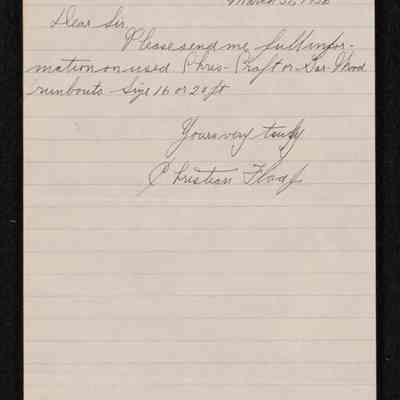 Dear Sir,
Please send me full infor-
mation on used Chris-Craft or Gar-Wood
runbouts size 16 or 20 ft
Yours very truly
Christian